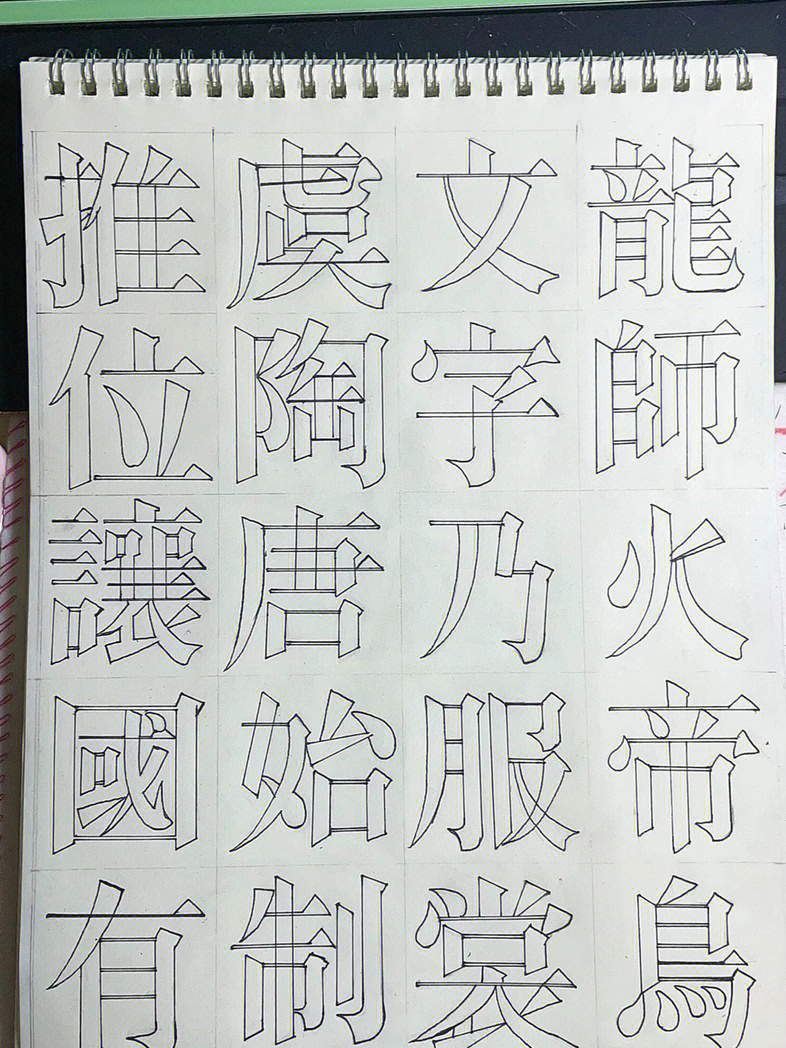 龍師火帝鳥
文字乃服裳
虞陶唐始制
推位讓國有